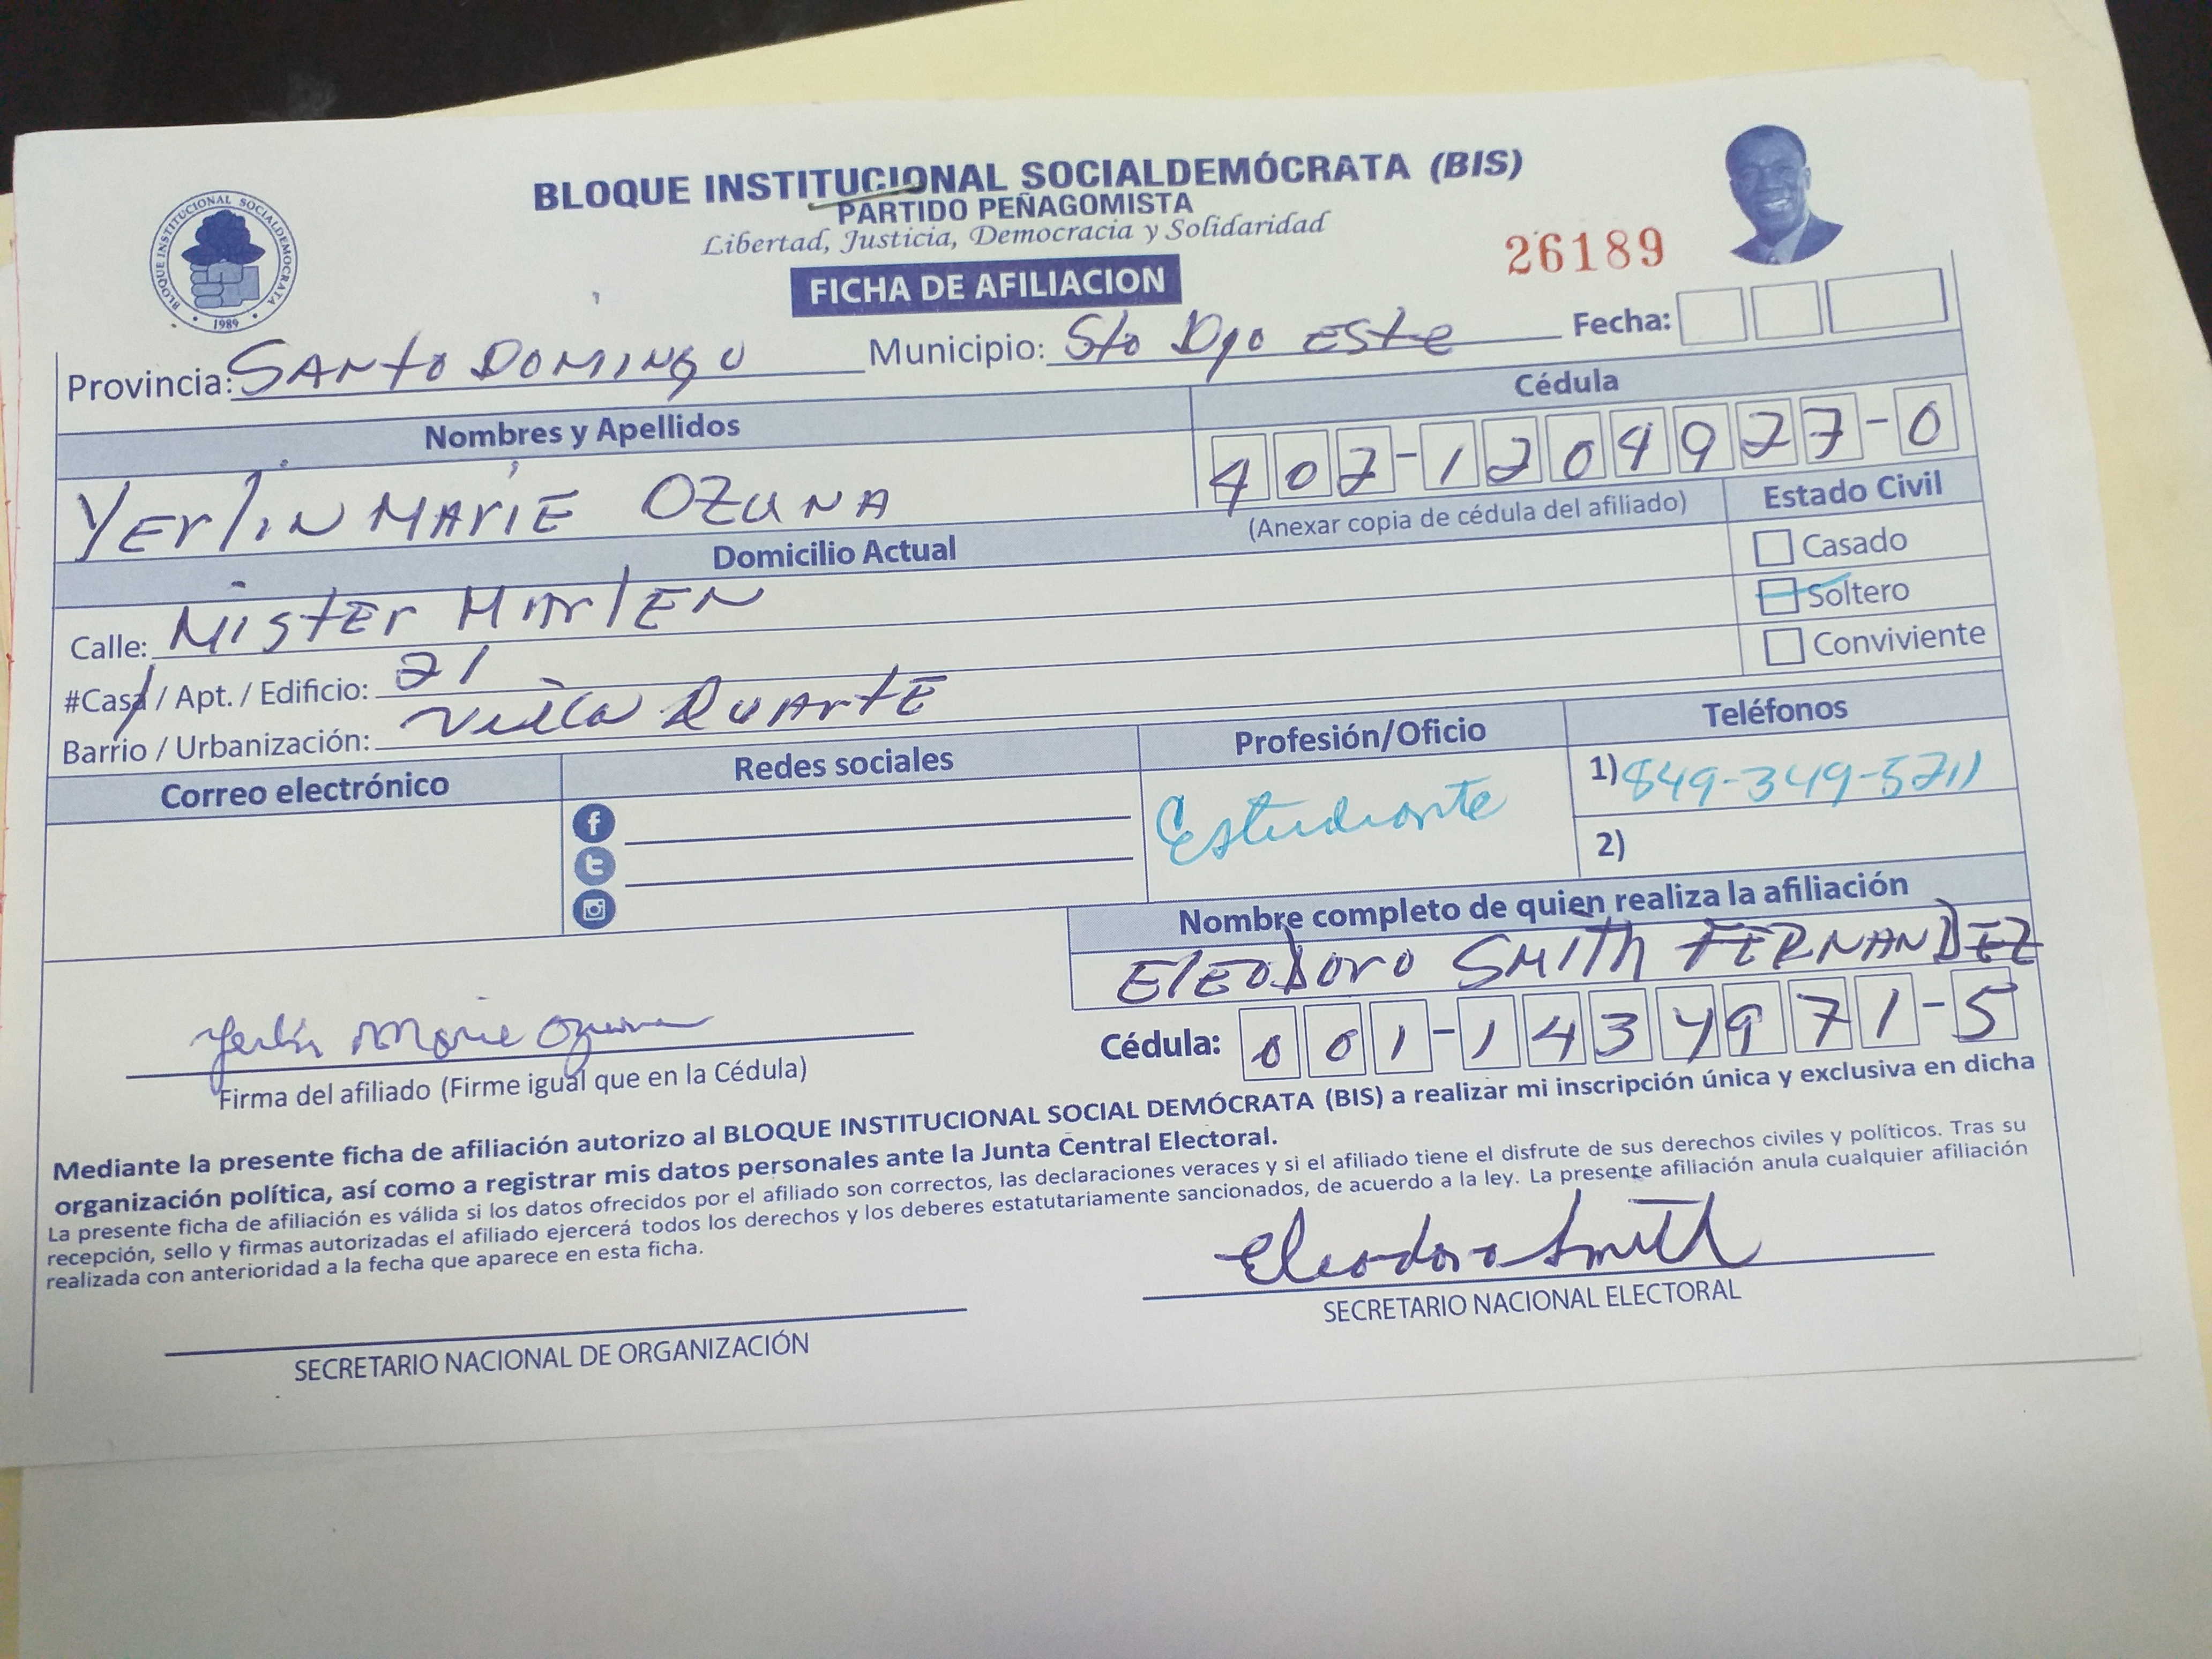 BLOQUE INSTITUCIONAL SOCIALDEMÓCRATA (BIS)
PARTIDO PEÑAGOMISTA
Libertad, Justicia, Democracia y Solidaridad
BLOQUE INSTITUCIONAL SOCIALDEMOCRATA
1989
26189
FICHA DE AFILIACION
Fecha:
Provincia: SANTO DOMINGO Municipio: Sto Dgo ESTE
Nombres y Apellidos Cédula
YErlIN MArIE OZUNA 407-1204927-0
(Anexar copia de cédula del afiliado) Estado Civil
Domicilio Actual
Casado
Calle: MISTEr MArlEN Soltero
#Casa / Apt. / Edificio: 21 Conviviente
Barrio / Urbanización: Villa DUArTE
Correo electrónico Redes sociales Profesión/Oficio Teléfonos
Estudiante 1) 849-349-5711
2)
Nombre completo de quien realiza la afiliación
ElEODoro SMITH FERNANDEZ
Cédula: 001-1434971-5
Yerlin Marie Ozuna
Firma del afiliado (Firme igual que en la Cédula)
Mediante la presente ficha de afiliación autorizo al BLOQUE INSTITUCIONAL SOCIAL DEMÓCRATA (BIS) a realizar mi inscripción única y exclusiva en dicha
organización política, así como a registrar mis datos personales ante la Junta Central Electoral.
La presente ficha de afiliación es válida si los datos ofrecidos por el afiliado son correctos, las declaraciones veraces y si el afiliado tiene el disfrute de sus derechos civiles y políticos. Tras su
recepción, sello y firmas autorizadas el afiliado ejercerá todos los derechos y los deberes estatutariamente sancionados, de acuerdo a la ley. La presente afiliación anula cualquier afiliación
realizada con anterioridad a la fecha que aparece en esta ficha.
Eleodoro Smith
SECRETARIO NACIONAL DE ORGANIZACIÓN SECRETARIO NACIONAL ELECTORAL